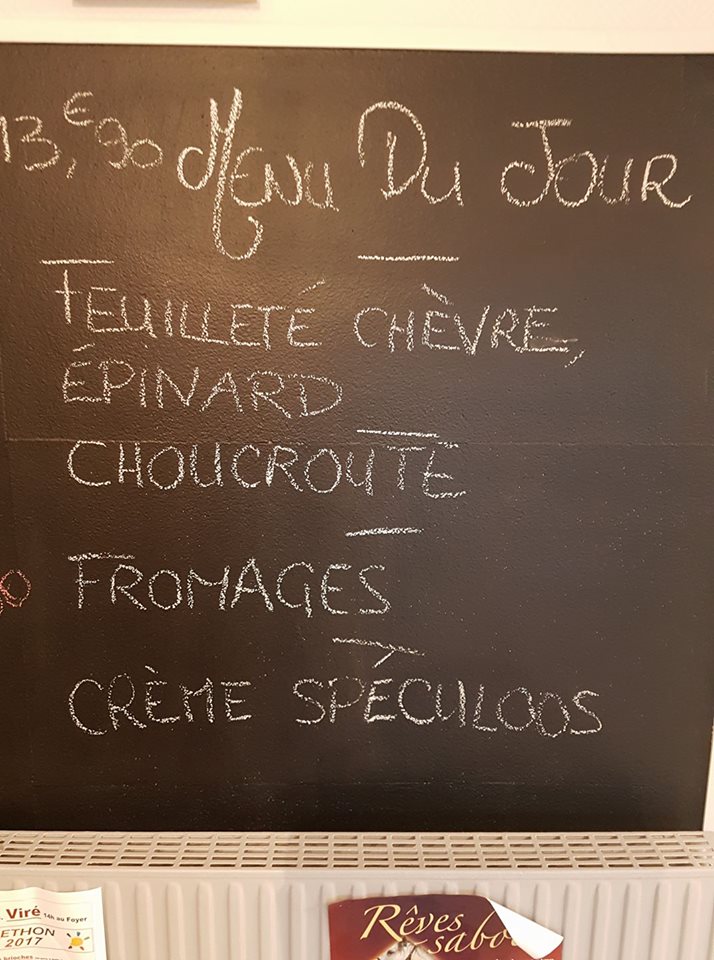 13,€90 Menu Du Jour
FEUILLETÉ CHÈVRE,
ÉPINARD
CHOUCROUTE
FROMAGES
CRÈME SPÉCULOOS
Viré 14h au Foyer
ETHON
2017
brioches
Rêves
sabo